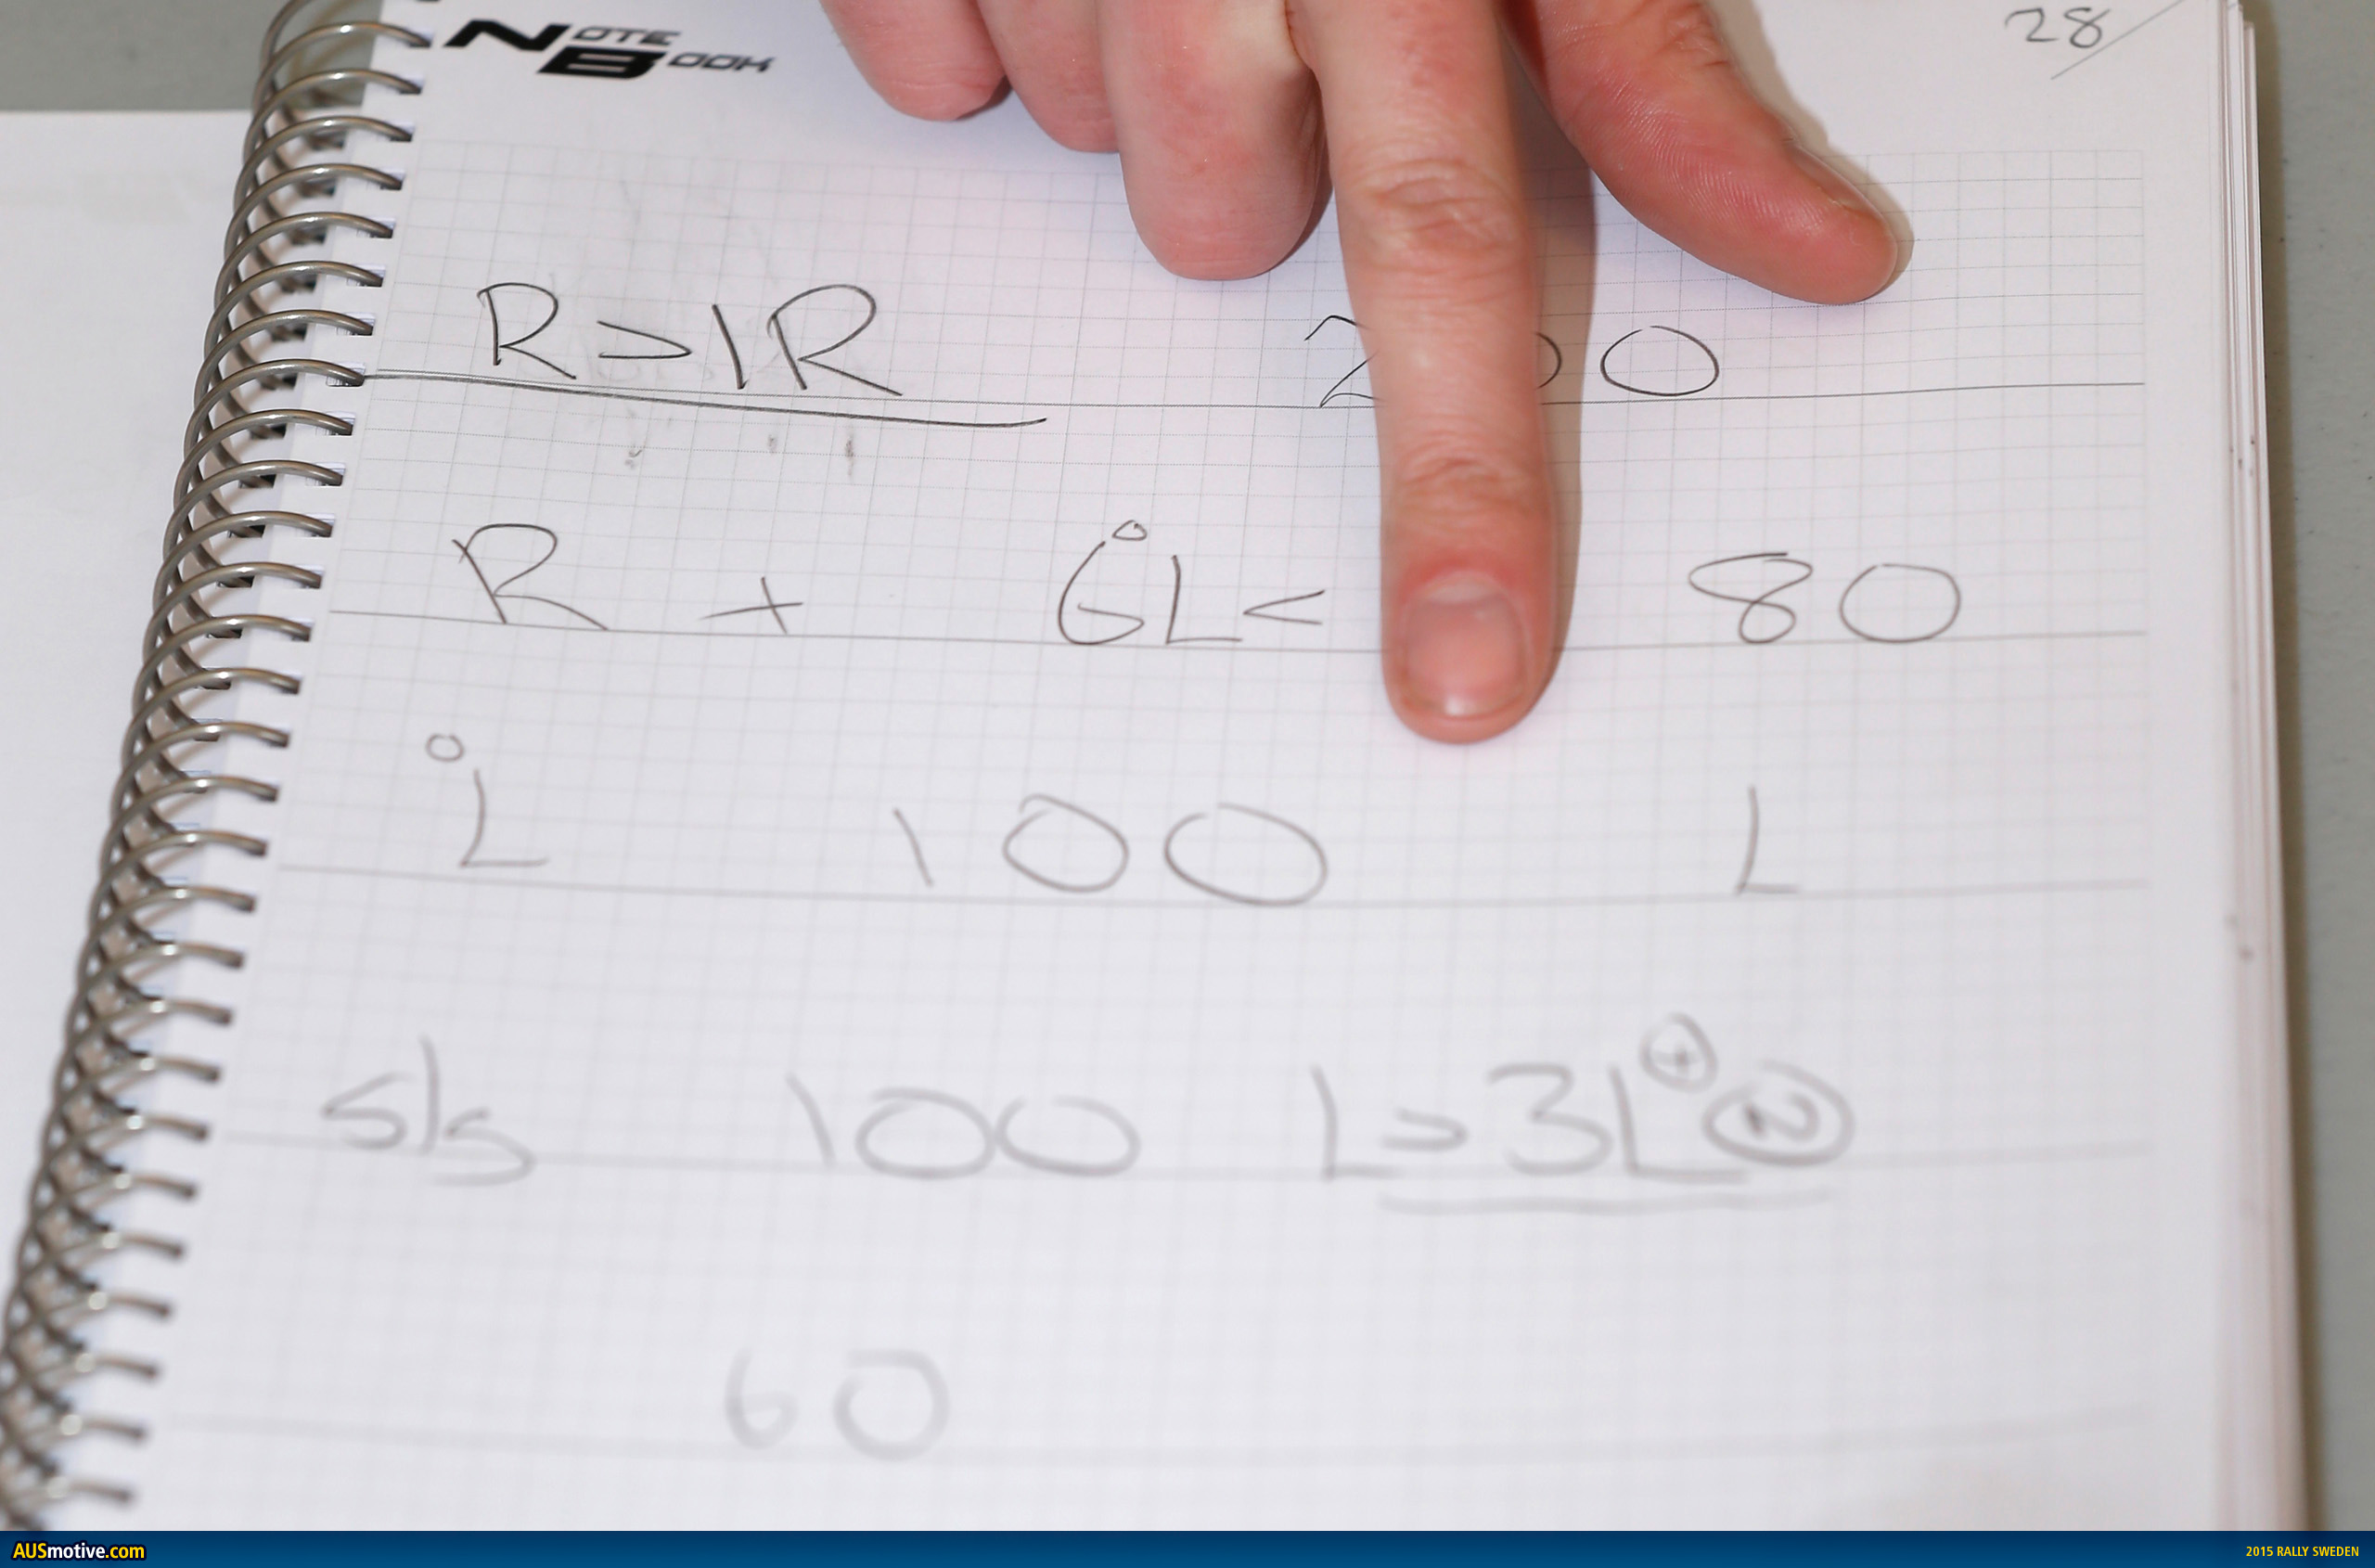 NOTE BOOK
28/
R>1R 200
R + 6°L< 80
°L 100 L
s/s 100 L=3L⊕ Ⓝ
60
AUSmotive.com 2015 RALLY SWEDEN